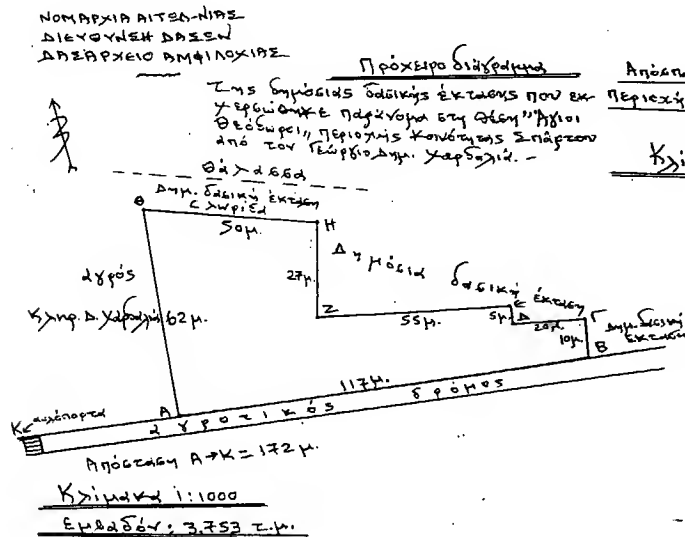 ΝΟΜΑΡΧΙΑ ΑΙΤΩΛ-ΝΙΑΣ
ΔΙΕΥΘΥΝΣΗ ΔΑΣΩΝ
ΔΑΣΑΡΧΕΙΟ ΑΜΦΙΛΟΧΙΑΣ
Πρόχειρο διάγραμμα
της δημόσιας δασικής έκτασης που εκ-
χερσώθηκε παράνομα στη θέση "Άγιοι
Θεόδωροι" περιοχής Κοινότητας Σπάρτου
από τον Γεώργιο Δημ. Χαρδαλιά.-
Περιοχή
Κλί
Θάλασσα
Δημ. δασική έκταση
Λωρίδα
Θ
50μ.
Η
αγρός
Κληρ. Δ. Χαρδαλιά
62μ.
27μ.
Δημόσια δασική έκταση
Ζ
55μ.
Ε
5μ.
Δ
20μ.
Γ
10μ.
Β
Δημ. δασική
έκταση
117μ.
Α
αγροτικός δρόμος
Κ
αυλόπορτα
Απόσταση Α→Κ=172μ.
Κλίμακα 1:1000
Εμβαδόν: 3.753 τ.μ.